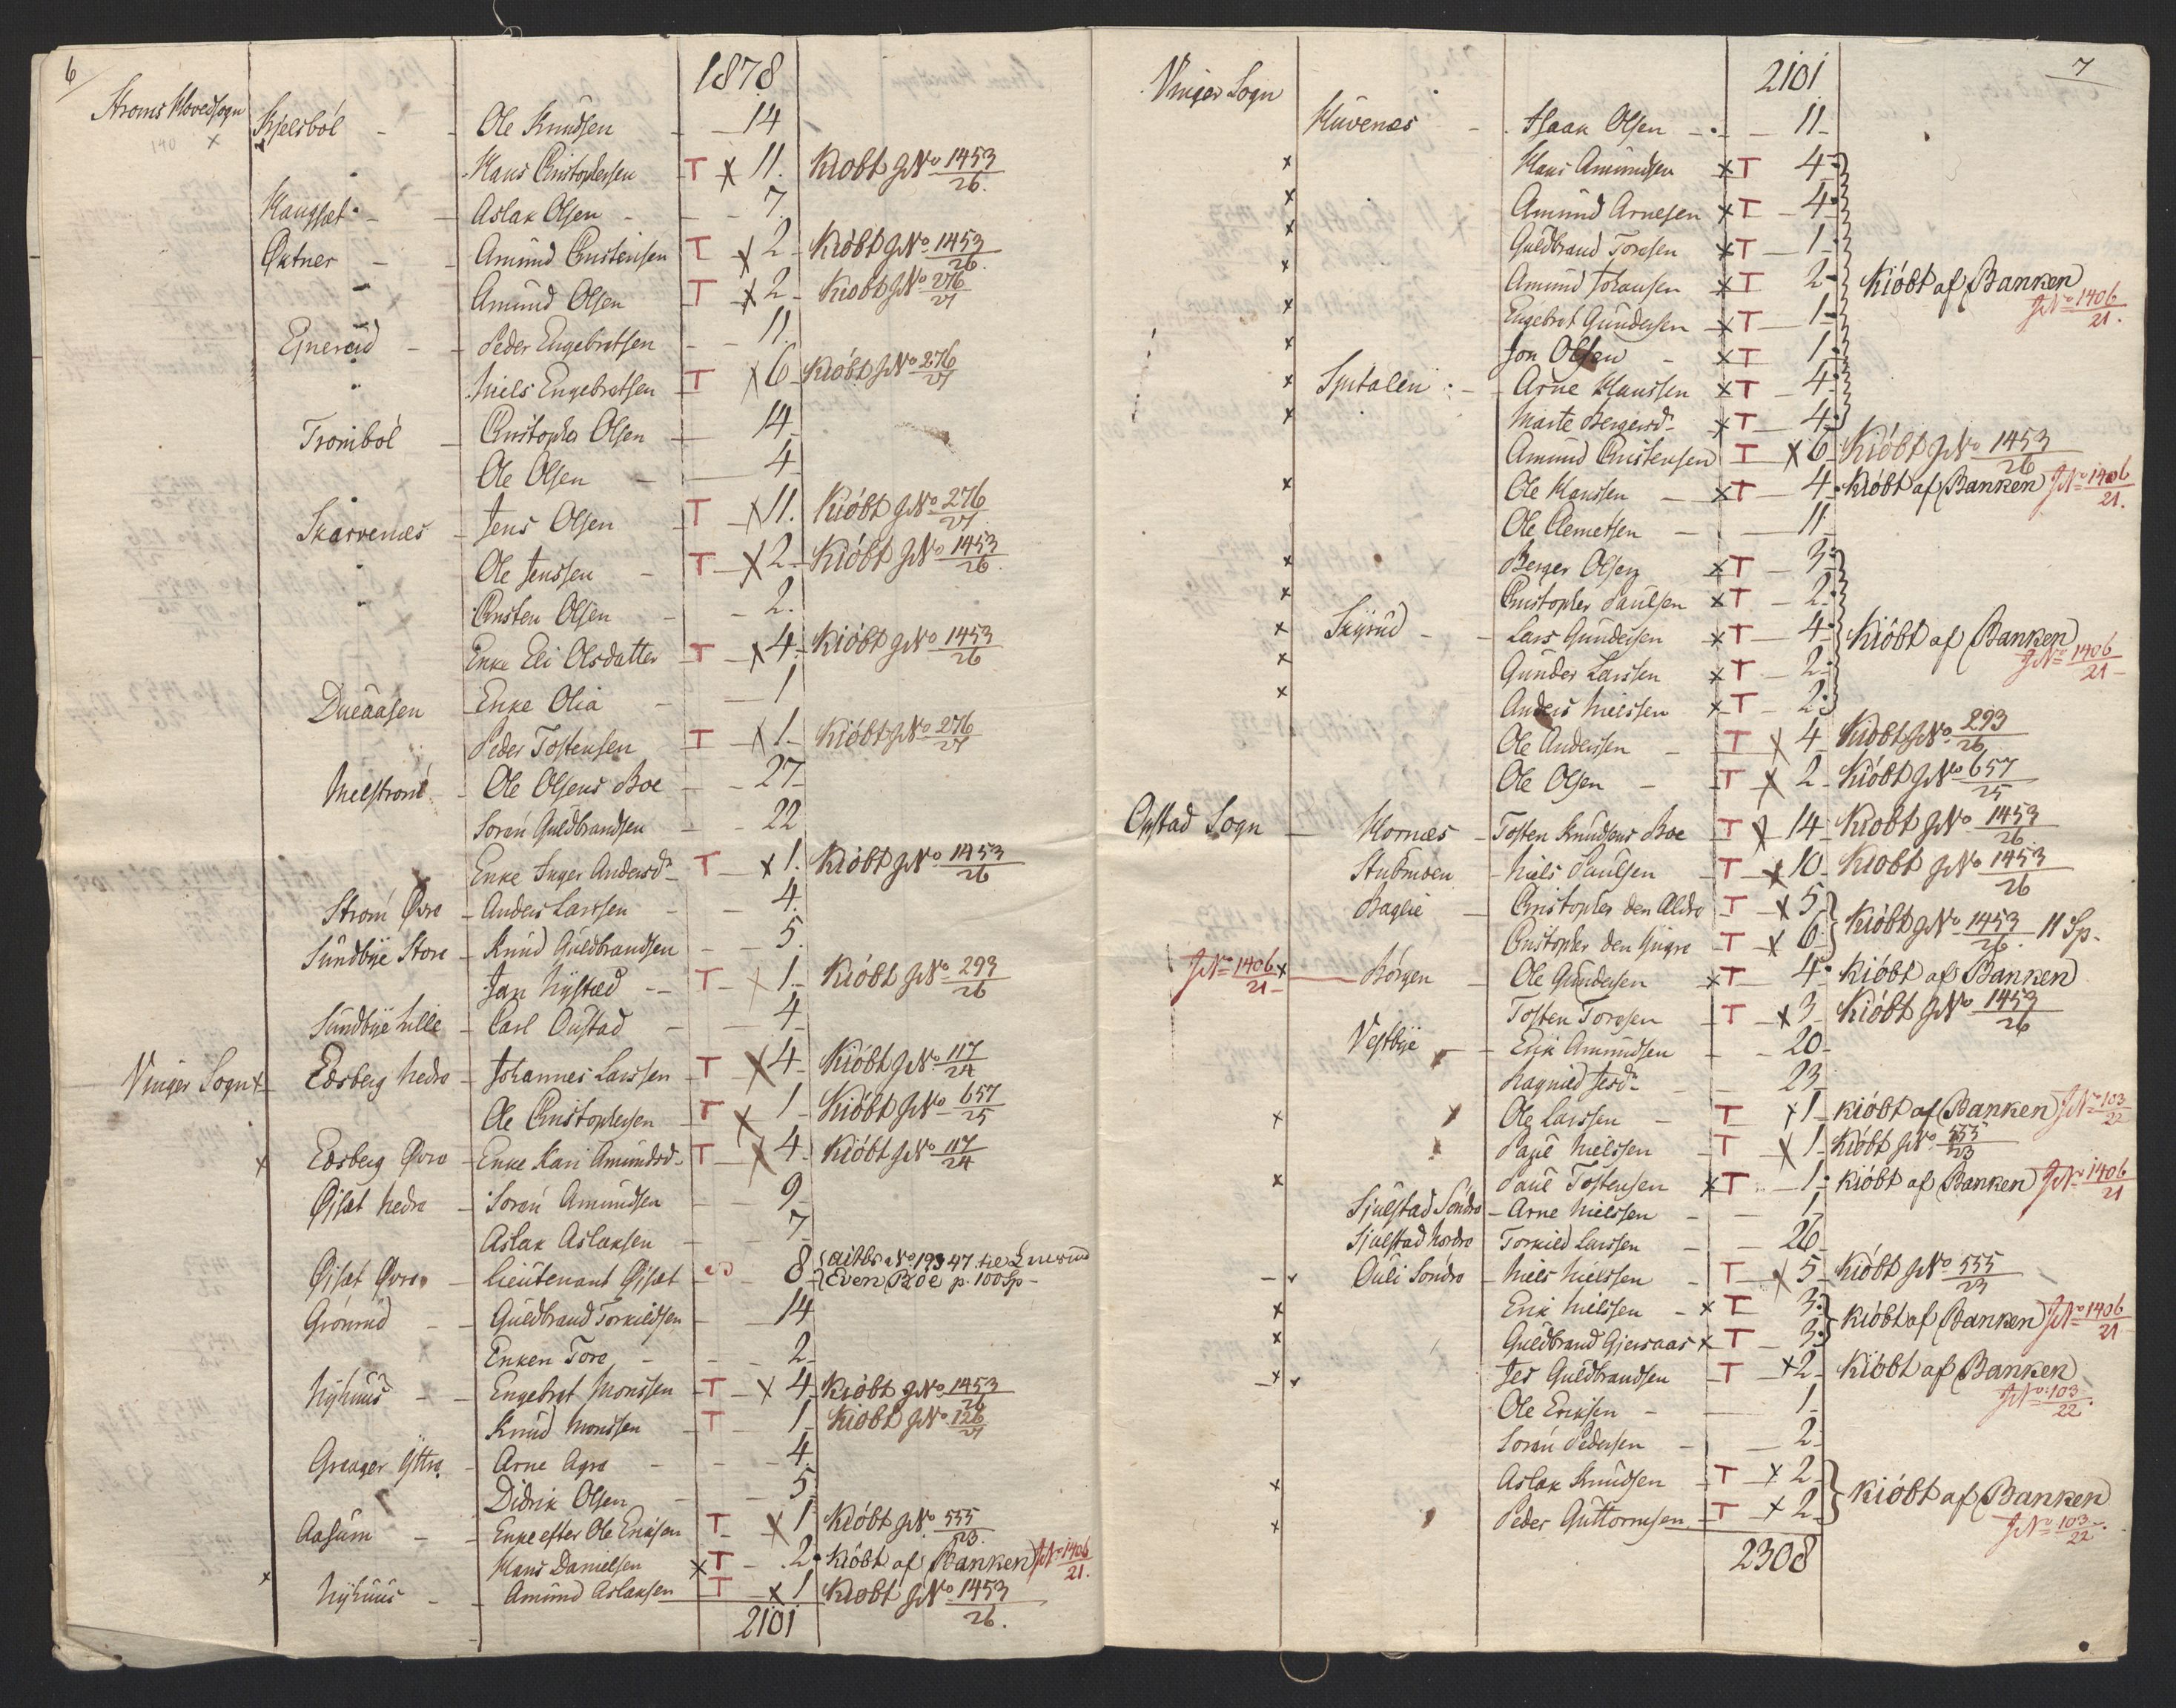 6
1878
Strøms Hovedsogn
140 x
Kjelsból - - Ole Knudsen - 14
Hans Christophersen T x 11. Kióbt JNo 1453/26.
Haugset - - Aslak Olsen - - 7.
Øktner - - Amund Christensen T x 2 - Kióbt JNo 1453/26.
Amund Olsen T x 2 - Kióbt JNo 276/27
Ejnerud - - Peder Engebretsen - 11.
Niels Engebretsen T x 6 - Kióbt JNo 276/27
Tromból - Christopher Olsen - 14
Ole Olsen - 4
Skarvenæs - Jens Olsen T x 11. Kióbt JNo 276/27
Ole Jenssen - T x 2 - Kióbt JNo 1453/26.
Christen Olsen - 2.
Enke Eli Olsdatter T x 4 - Kióbt JNo 1453/26
Dueaasen Enke Olia - 1
Peder Tostensen T x 1 - Kióbt JNo 276/27
Melstrøm - Ole Olsens Boe - 27 -
Soren Guldbrandsen - 22
Enke Inger Andersd. T x 1. Kióbt JNo 1453/26
Strøm Øvre - Anders Larssen - 4.
Sundbye Store - Knud Guldbrandsen - 5.
Jan Nystæd - T x 1 - Kióbt JNo 293/26
Sundbye Lille - Carl Oustad - 4
Vinger Sogn x Edsberg Nedre - Johannes Larssen T x 4 - Kióbt JNo 117/24
Ole Christophersen T x 1 - Kióbt JNo 657/25
x Edsberg Øvre - Enke Kari Amundsd. T x 4 - Kióbt JNo 117/24
Øiset Nedre - Soren Amundsen - 9 -
Aslak Aslaksen - 7 -
Øiset Øvre - Lieutenant Øiset - 8 - No 193 47. til
Even Boe p. 100 Sp -
Grónrud - - Guldbrand Torkildsen - 14
Enken Tore - - 2 -
Nyhuus - - Engebret Monssen T x 4 - Kióbt JNo 1453/26
Knud Monssen T - 1 - Kióbt JNo 126/27
Graager Yttre - Arne Agre - 4.
Didrik Olsen - 5.
Aasum - - Enke efter Ole Erichsen T x 1 Kióbt JNo 555/23.
Hans Danielsen x T - 2 Kióbt af Banken JNo 1406/21.
x Nyhuus - - Amund Aslaksen T x 1. Kióbt JNo 1453/26.
2101
7
2101
Vinger Sogn
Huvenæs - Isaak Olsen - - 11 -
x Hans Amundsen x T 4 -
x Amund Arnesen x T - 4
x Guldbrand Toresen x T - 1
x Amund Johansen x T 2 } Kióbt af Banken
JNo 1406/21.
x Engebret Gundersen x T - 1
x Jon Olsen - x T 1
x Spitalen - Arne Hanssen x T - 4
x Marte Bergersd. x T - 4
Amund Christensen T x 6 Kióbt JNo 1453/26
x Ole Hanssen - x T - 4 Kióbt af Banken JNo 1406/21.
Ole Clemetsen - 11
x Berger Olsen x T - 3
x Christopher Paulsen x T - 2
x Skyrud - - Lars Gundersen x T - 4 } Kióbt af Banken
JNo 1406/21 -
x Gunder Larssen x T - 2
x Anders Nielssen x T - 2
Ole Anderssen - T x 4 Kióbt JNo 293/26
Ole Olsen - T x 2 - Kióbt JNo 657/25
Opstad Sogn - Hornæs - Tosten Knudsens Boe T x 14 Kióbt JNo 1453/26.
Stubmoen - Niels Paulsen - T x 10 - Kióbt JNo 1453/26
Baglie - Christopher den Ældre T x 5
Christopher den Yngre T x 6 } Kióbt JNo 1453/26. 11 Sp.
JNo 1406/21 - x Bórgen - Ole Gundersen x T 4 Kióbt af Banken
Tosten Toresen T x 3 - Kióbt JNo 1453/26
Vestbye - - Erik Amundsen - 20 -
Ragnild Jesd. - 23
x Ole Larssen - T x 1 - Kióbt af Banken JNo 103/22
Paul Nielssen - T x 1 - Kióbt JNo 555/23
x Paul Tostensen x T - 1 Kióbt af Banken JNo 1406/21
Sjulstad Sóndre - Arne Nielssen - 1 -
Sjulstad Nordre Torkild Larssen - 26 -
Ouli Sóndre - Niels Nielssen - T x 5 - Kióbt JNo 555/23
x Erik Nielssen - x T 3
x Guldbrand Gjersaas x T - 3 } Kióbt af Banken JNo 1406/21
x Jes Guldbrandsen T x 2 - Kióbt af Banken
JNo 103/22.
Ole Eriksen - 1 -
Soren Pedersen - 2 -
x Aslak Knudsen - T x 2 -
x Peder Guttormsen T x 2 - } Kióbt af Banken
JNo 103/22.
2308